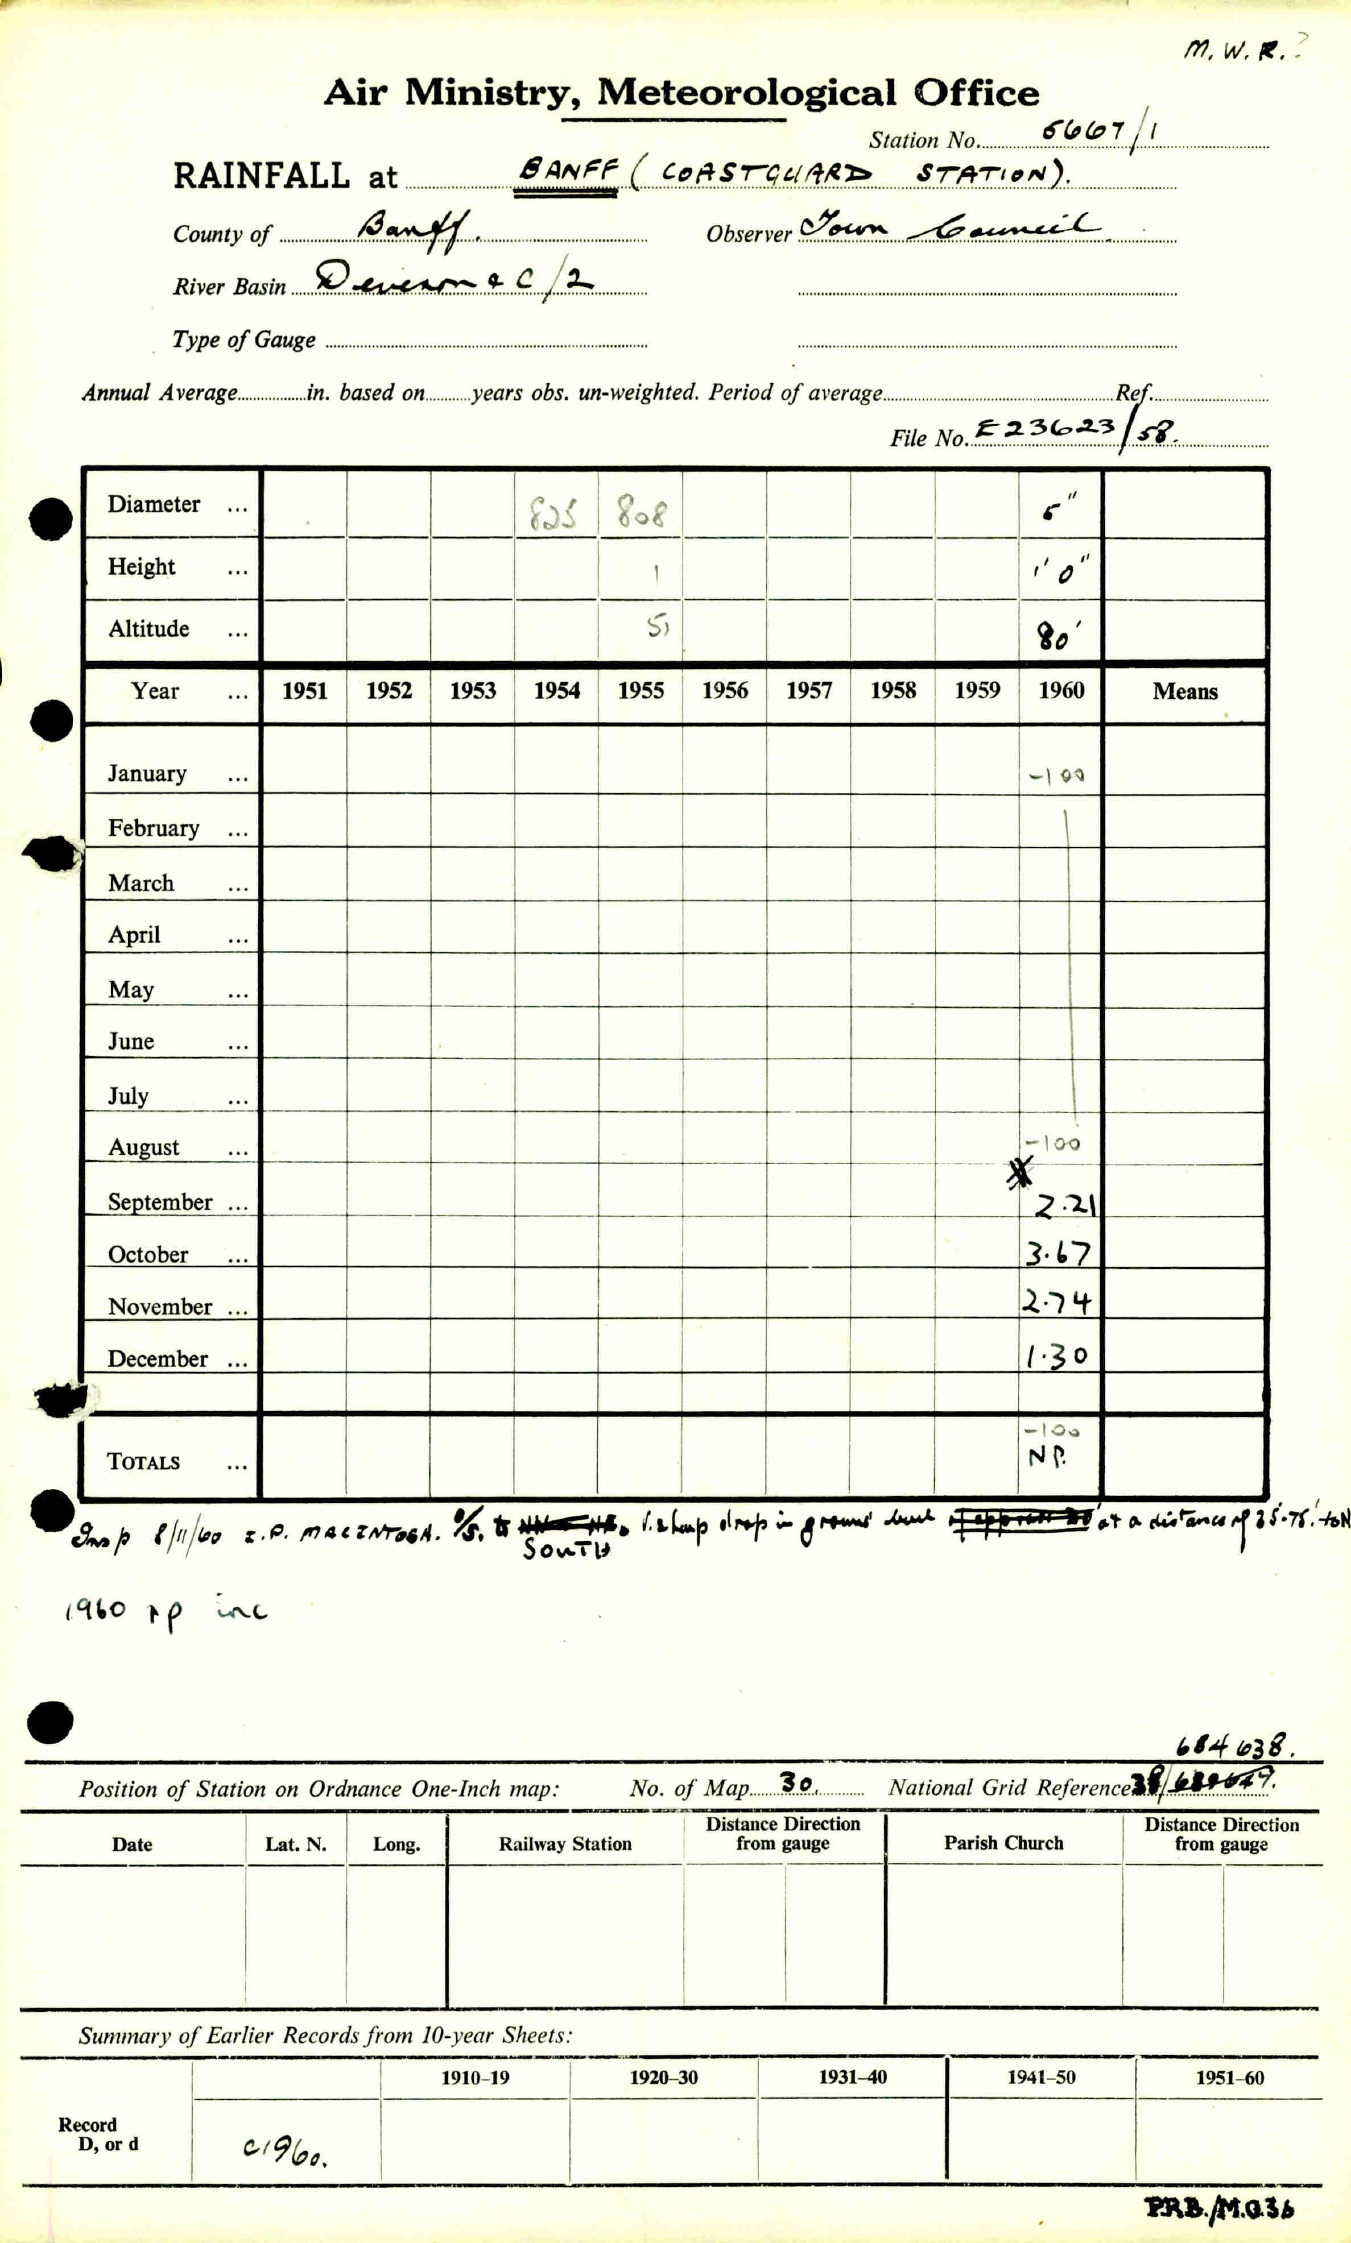 M. W. R.?
Air Ministry, Meteorological Office
Station No. 6667/1
RAINFALL at BANFF (COASTGUARD STATION).
County of Banff. Observer Town Council
River Basin Deveron & C/2
Type of Gauge
Annual Average in. based on years obs. un-weighted. Period of average Ref.
File No. E23623/58.
Diameter ... 825 808 5"
Height ... 1 1' 0"
Altitude ... 51 80'
Year ... 1951 1952 1953 1954 1955 1956 1957 1958 1959 1960 Means
January ... -100
February ...
March ...
April ...
May ...
June ...
July ...
August ... -100
September ... 2.21
October ... 3.67
November ... 2.74
December ... 1.30
-100
TOTALS ... NP.
Insp 8/11/60 I.P. MACINTOSH. O/S. to drop in ground level at a distance of to N
SOUTH
1960 np inc
684 638.
Position of Station on Ordnance One-Inch map: No. of Map 30. National Grid Reference 38/
Date Lat. N. Long. Railway Station Distance Direction from gauge Parish Church Distance Direction from gauge
Summary of Earlier Records from 10-year Sheets:
1910–19 1920–30 1931–40 1941–50 1951–60
Record
D, or d c1960.
P.R.B./M.O.36